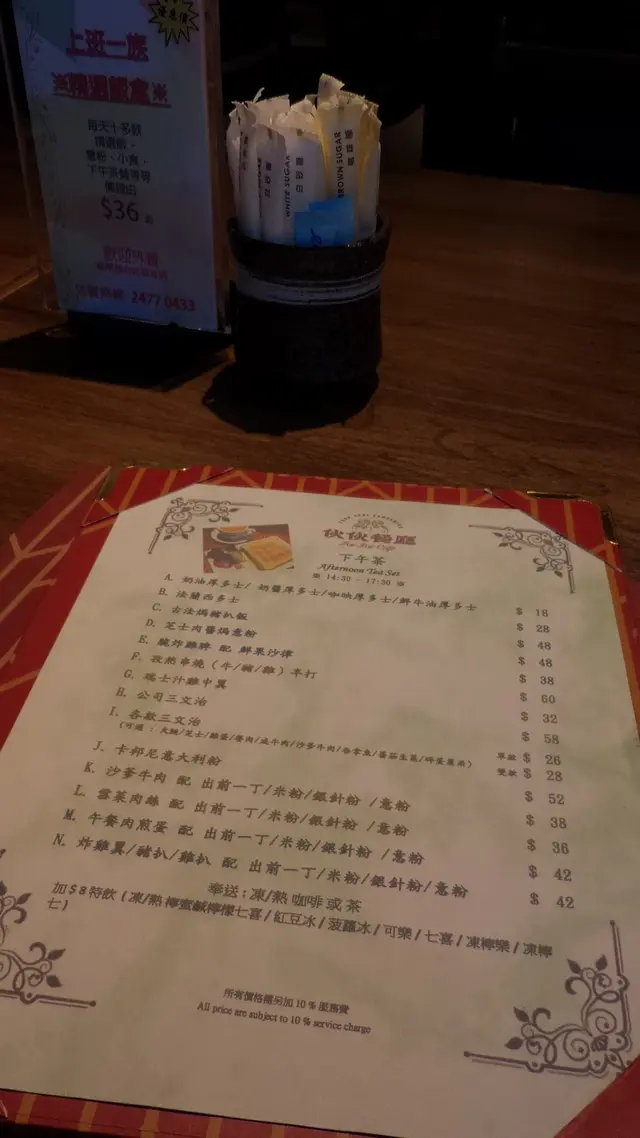 上班一族
※精選靚盒※
每天十多款
小食,
$36
歡迎外賣
2477 0433
WHITE SUGAR
BROWN SUGAR
伙伙餐廳
下午茶
Afternoon Tea Set
※ 14:30 - 17:30 ※
A. 奶油厚多士/ 奶醬厚多士/咖央厚多士/鮮牛油厚多士 $ 18
B. 法蘭西多士 $ 28
C. 古法焗豬扒飯 $ 48
D. 芝士肉醬焗意粉 $ 48
E. 脆炸雞髀 配 鮮果沙律 $ 38
F. 孜然串燒 (牛/豬/雞) 半打 $ 60
G. 瑞士汁雞中翼 $ 32
H. 公司三文治 $ 58
I. 各款三文治 單款 $ 26
(可選 : 火腿/芝士/雞蛋/餐肉/咸牛肉/沙爹牛肉/吞拿魚/蕃茄生菜/碎蛋粟米) 雙款 $ 28
J. 卡邦尼意大利粉 $ 52
K. 沙爹牛肉 配 出前一丁/米粉/銀針粉 /意粉 $ 38
L. 雪菜肉絲 配 出前一丁/米粉/銀針粉 /意粉 $ 36
M. 午餐肉煎蛋 配 出前一丁/米粉/銀針粉 /意粉 $ 42
N. 炸雞翼/豬扒/雞扒 配 出前一丁/米粉/銀針粉/意粉 $ 42
奉送 : 凍/熱 咖啡 或 茶
加$8特飲 (凍/熱檸蜜鹹檸檬七喜/紅豆冰/菠蘿冰/可樂/七喜/凍檸樂/凍檸
七)
所有價格需另加 10 % 服務費
All price are subject to 10 % service charge